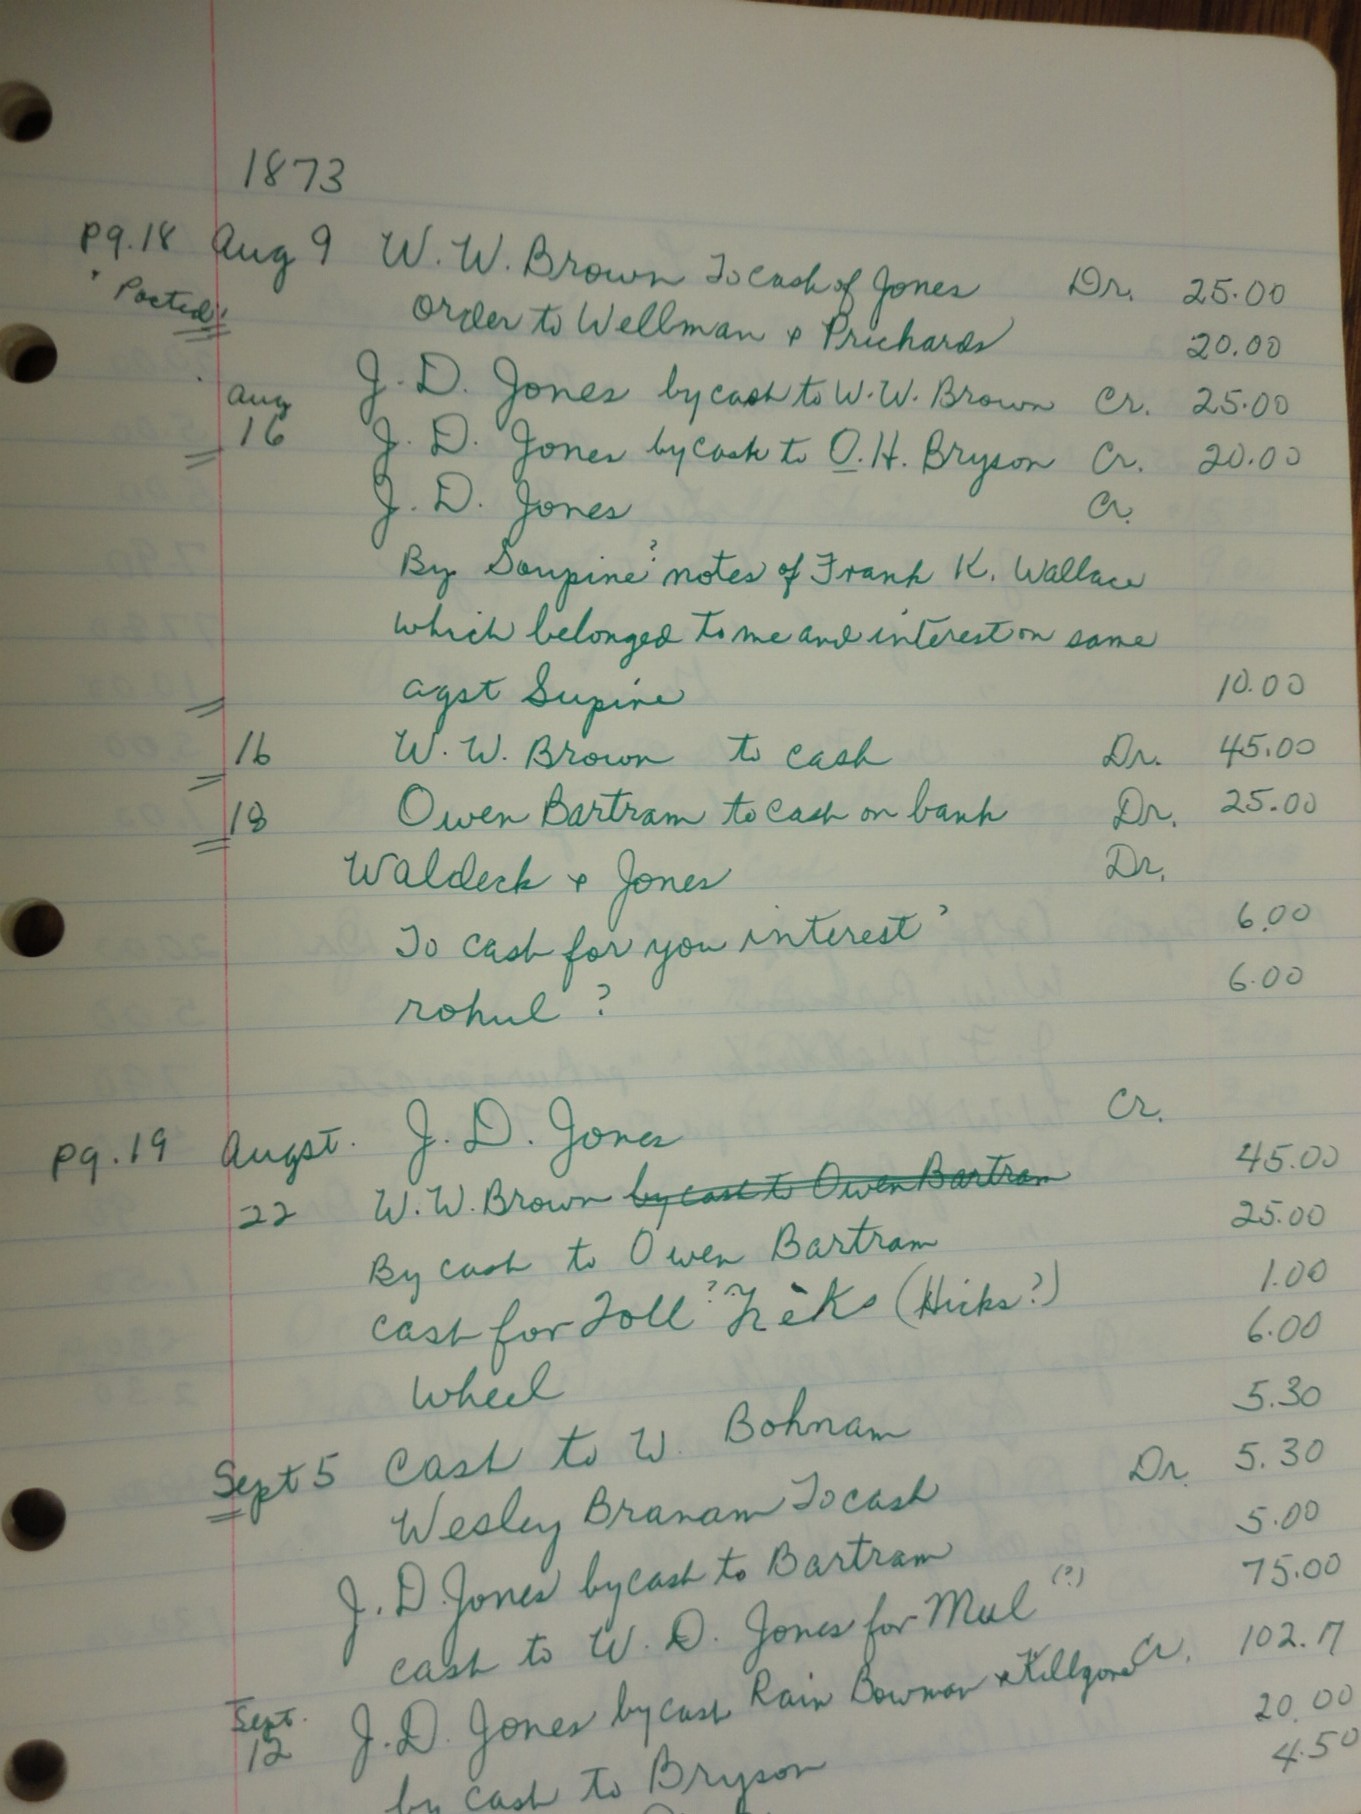 1873
pg.18 Aug 9 W. W. Brown To cash of Jones Dr. 25.00
"Posted" order to Wellman & Prichards 20.00
J. D. Jones by cash to W. W. Brown Cr. 25.00
Aug 16 J. D. Jones by cash to O. H. Bryson Cr. 20.00
J. D. Jones Cr.
By Soupine? notes of Frank K. Wallace
which belonged to me and interest on same
agst Supine 10.00
16 W. W. Brown to cash Dr. 45.00
18 Owen Bartram to cash on bank Dr. 25.00
Waldeck & Jones Dr.
To cash for you interest? 6.00
rohul? 6.00
pg.19 Augst. J. D. Jones Cr.
22 W. W. Brown by cash to Owen Bartram 45.00
By cash to Owen Bartram 25.00
cash for Toll? (Hicks?) 1.00
Wheel 6.00
Sept 5 Cash to W. Bohnam 5.30
Wesley Branam To cash Dr. 5.30
J. D. Jones by cash to Bartram 5.00
cash to W. D. Jones for Mul (?) 75.00
Sept. 12 J. D. Jones by cash Rain Bowman & Killgore Cr. 102.17
by cash to Bryson 20.00
4.50